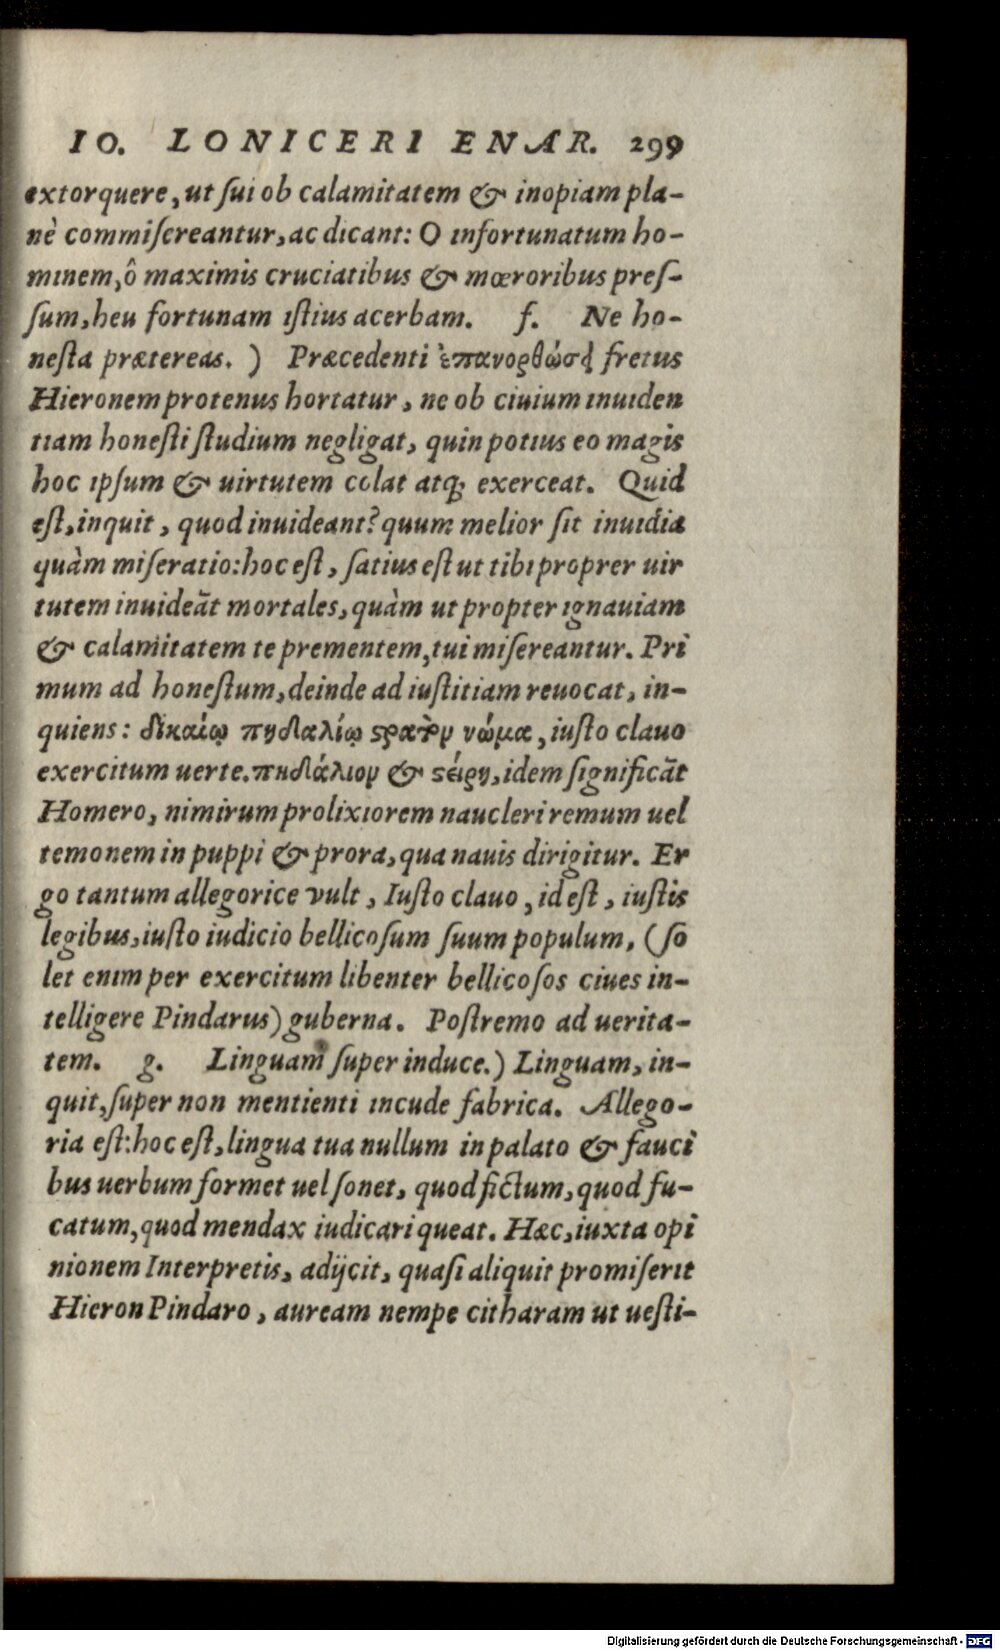 IO. LONICERI ENAR. 299
extorquere, ut sui ob calamitatem & inopiam pla-
nè commiſereantur, ac dicant: O infortunatum ho-
minem, ô maximis cruciatibus & mœroribus preſ-
ſum, heu fortunam iſtius acerbam. f. Ne ho-
neſta prætereas. ) Præcedenti ἐπανορθώσει fretus
Hieronem protenus hortatur, ne ob ciuium inuiden
tiam honeſti ſtudium negligat, quin potius eo magis
hoc ipſum & uirtutem colat atq; exerceat. Quid
eſt, inquit, quod inuideant? quum melior ſit inuidia
quàm miſeratio: hoc eſt, ſatius eſt ut tibi proprer uir
tutem inuideāt mortales, quàm ut propter ignauiam
& calamitatem te prementem, tui miſereantur. Pri
mum ad honeſtum, deinde ad iuſtitiam reuocat, in-
quiens: δικαίῳ πηδαλίῳ ϛρατὸν νώμα, iuſto clauo
exercitum uerte. πηδάλιον & ϛείρη, idem ſignificāt
Homero, nimirum prolixiorem naucleri remum uel
temonem in puppi & prora, qua nauis dirigitur. Er
go tantum allegorice vult, Iuſto clauo, id eſt, iuſtis
legibus, iuſto iudicio bellicoſum ſuum populum, (ſo
let enim per exercitum libenter bellicoſos ciues in-
telligere Pindarus) guberna. Poſtremo ad uerita-
tem. g. Linguam ſuper induce.) Linguam, in-
quit, ſuper non mentienti incude fabrica. Allego-
ria eſt: hoc eſt, lingua tua nullum in palato & fauci
bus uerbum formet uel ſonet, quod fictum, quod fu-
catum, quod mendax iudicari queat. Hæc, iuxta opi
nionem Interpretis, adijcit, quaſi aliquit promiſerit
Hieron Pindaro, auream nempe citharam ut ueſti-
Digitalisierung gefördert durch die Deutsche Forschungsgemeinschaft - DFG